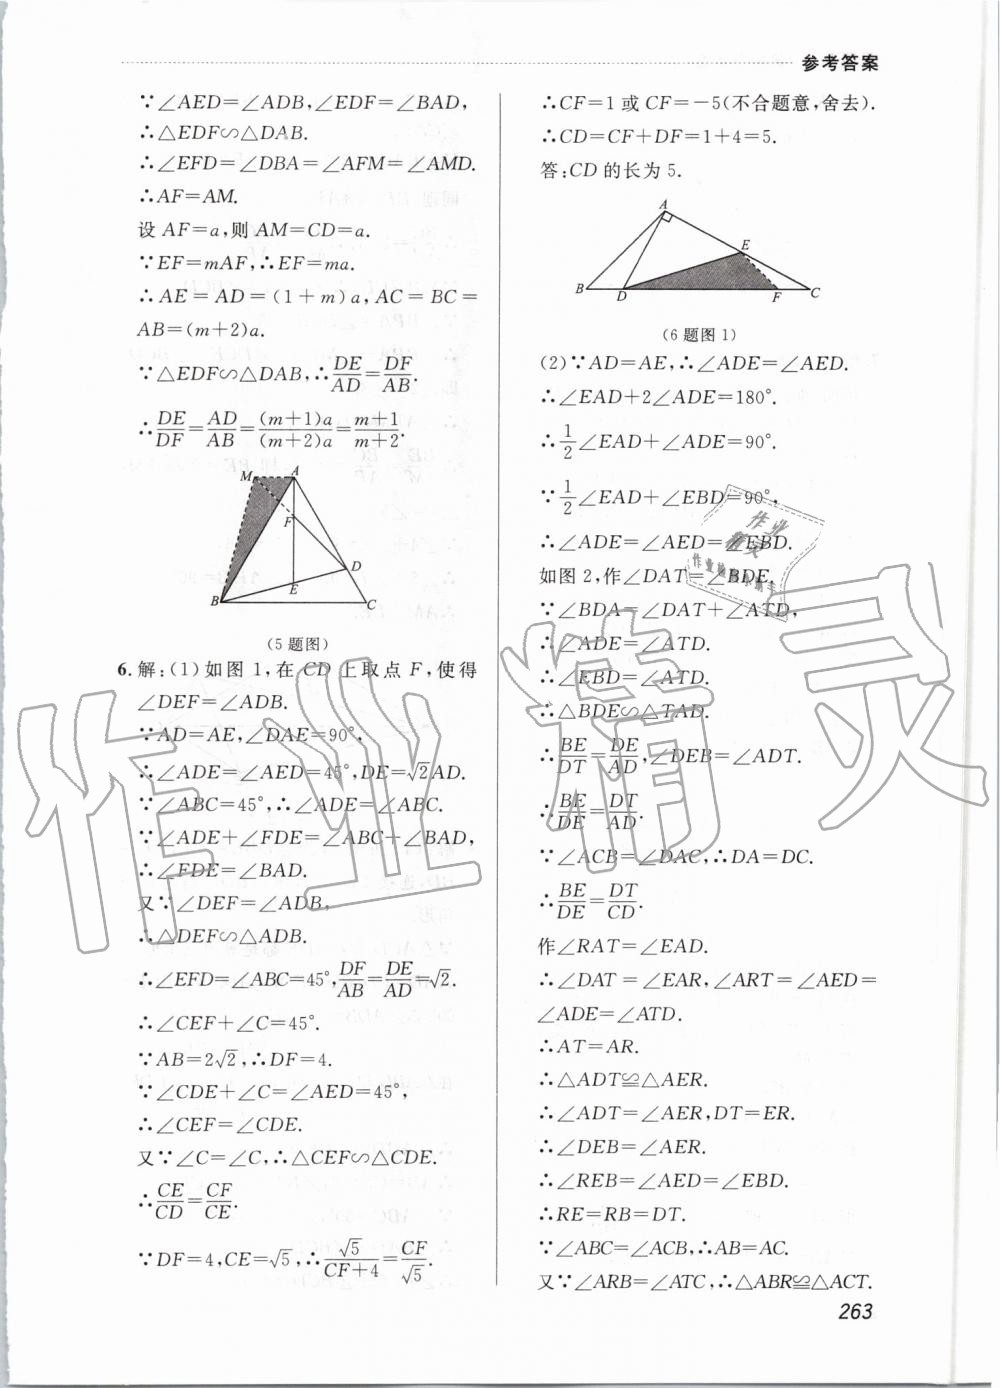 参考答案
∵∠AED=∠ADB,∠EDF=∠BAD,
∴△EDF∽△DAB.
∴∠EFD=∠DBA=∠AFM=∠AMD.
∴AF=AM.
设 AF=a,则 AM=CD=a.
∵EF=mAF,∴EF=ma.
∴AE=AD=(1+m)a,AC=BC=
AB=(m+2)a.
∵△EDF∽△DAB,∴DE/AD=DF/AB.
∴DE/DF=AD/AB=(m+1)a/(m+2)a=m+1/m+2.
M A
F
D
E
B C
(5题图)
6.解:(1)如图1,在 CD 上取点 F,使得
∠DEF=∠ADB.
∵AD=AE,∠DAE=90°,
∴∠ADE=∠AED=45°,DE=√2AD.
∵∠ABC=45°,∴∠ADE=∠ABC.
∵∠ADE+∠FDE=∠ABC+∠BAD,
∴∠FDE=∠BAD.
又∵∠DEF=∠ADB,
∴△DEF∽△ADB.
∴∠EFD=∠ABC=45°,DF/AB=DE/AD=√2.
∴∠CEF+∠C=45°.
∵AB=2√2,∴DF=4.
∵∠CDE+∠C=∠AED=45°,
∴∠CEF=∠CDE.
又∵∠C=∠C,∴△CEF∽△CDE.
∴CE/CD=CF/CE.
∵DF=4,CE=√5,∴√5/CF+4=CF/√5.
∴CF=1或CF=-5(不合题意,舍去).
∴CD=CF+DF=1+4=5.
答:CD的长为5.
A
E
B D F C
(6题图1)
(2)∵AD=AE,∴∠ADE=∠AED.
∴∠EAD+2∠ADE=180°.
∴1/2∠EAD+∠ADE=90°.
∵1/2∠EAD+∠EBD=90°,
∴∠ADE=∠AED=∠EBD.
如图2,作∠DAT=∠BDE,
∵∠BDA=∠DAT+∠ATD,
∴∠ADE=∠ATD.
∴∠EBD=∠ATD.
∴△BDE∽△TAD.
∴BE/DT=DE/AD,∠DEB=∠ADT.
∴BE/DE=DT/AD.
∵∠ACB=∠DAC,∴DA=DC.
∴BE/DE=DT/CD.
作∠RAT=∠EAD.
∴∠DAT=∠EAR,∠ART=∠AED=
∠ADE=∠ATD.
∴AT=AR.
∴△ADT≌△AER.
∴∠ADT=∠AER,DT=ER.
∴∠DEB=∠AER.
∴∠REB=∠AED=∠EBD.
∴RE=RB=DT.
∵∠ABC=∠ACB,∴AB=AC.
又∵∠ARB=∠ATC,∴△ABR≌△ACT.
263
作业精灵